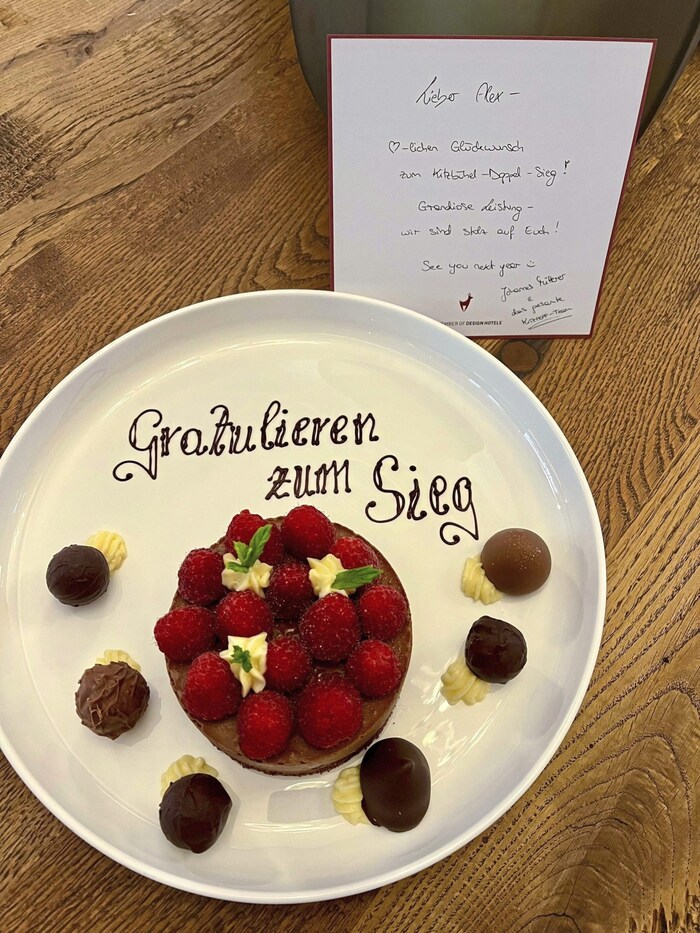 Lieber Alex -
♡-lichen Glückwunsch
zum Kitzbühel-Doppel-Sieg!
Grandiose Leistung -
wir sind stolz auf Euch!
See you next year ☺
Johannes
&
das gesamte
-Team
MBER OF DESIGN HOTELS
Gratulieren
zum Sieg